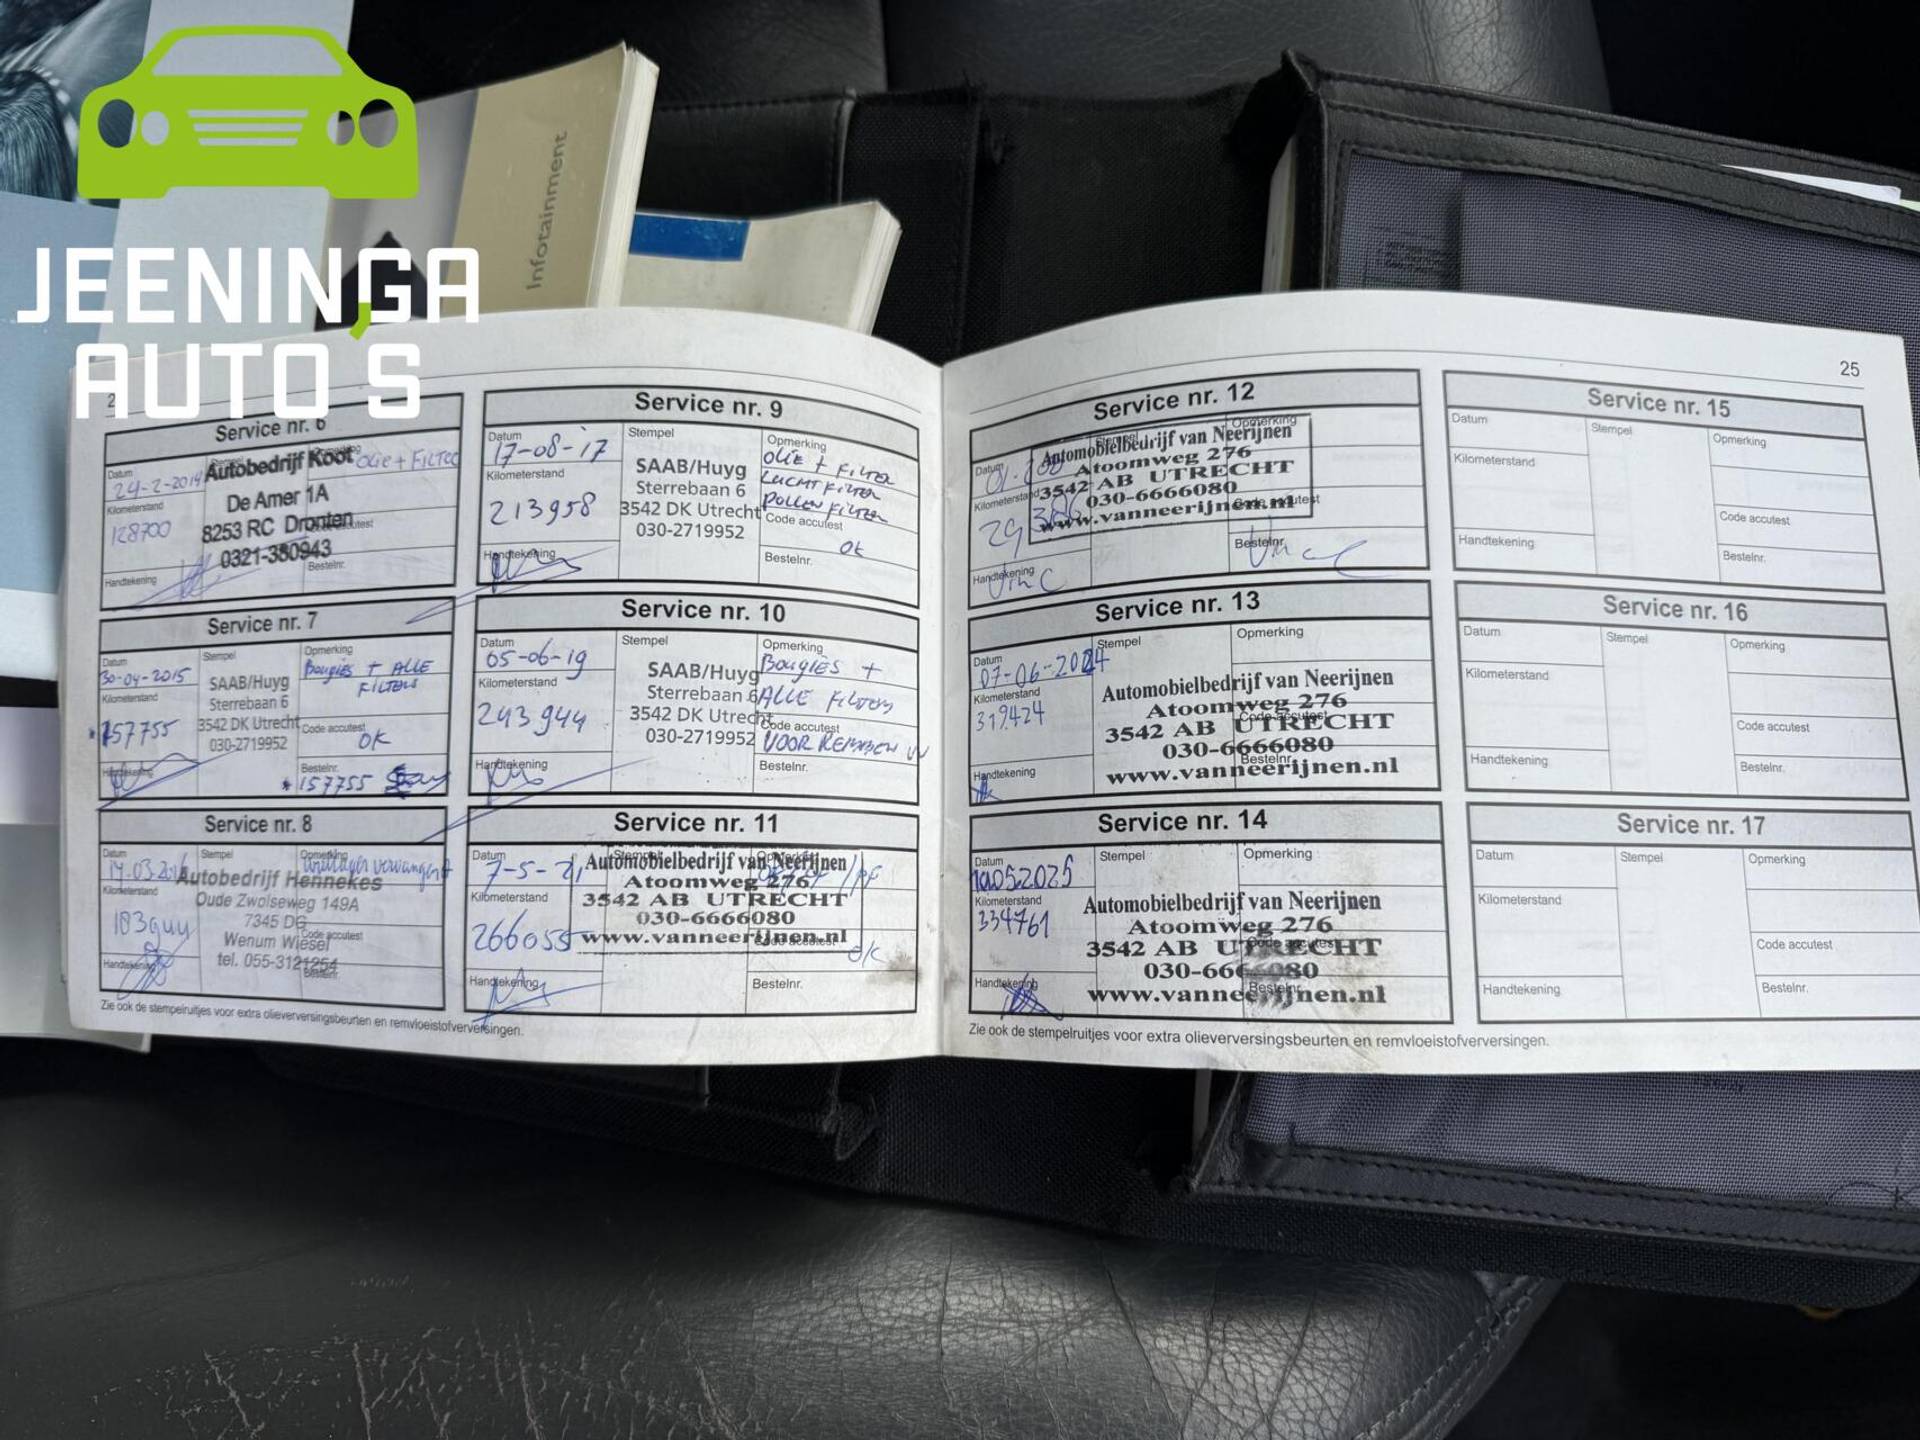 JEENINGA
AUTO'S
Infotainment
25
Service nr. 6
Datum
24-2-2014
Kilometerstand
128700
Handtekening
Autobedrijf Koot
De Amer 1A
8253 RC Dronten
0321-380943
Olie + Filter
Bestelnr.
Service nr. 7
Datum
30-04-2015
Kilometerstand
*157755
Stempel
SAAB/Huyg
Sterrebaan 6
3542 DK Utrecht
030-2719952
Opmerking
Bougies + ALLE
FILTERS
Code accutest
OK
Bestelnr.
*157755
Service nr. 8
Datum
Kilometerstand
Handtekening
Stempel
Autobedrijf Hennekes
Oude Zwolseweg 149A
7345 DG
Wenum Wiesel
tel. 055-3121254
Opmerking
Code accutest
Service nr. 9
Datum
17-08-17
Kilometerstand
213958
Handtekening
Stempel
SAAB/Huyg
Sterrebaan 6
3542 DK Utrecht
030-2719952
Opmerking
OLIE + FILTER
LUCHTFILTER
POLLENFILTER
Code accutest
OK
Bestelnr.
Service nr. 10
Datum
05-06-19
Kilometerstand
243944
Handtekening
Stempel
SAAB/Huyg
Sterrebaan 6
3542 DK Utrecht
030-2719952
Opmerking
Bougies +
ALLE FILTERS
Code accutest
VOOR REMMEN
Bestelnr.
Service nr. 11
Datum
7-5-21
Kilometerstand
266055
Handtekening
Automobielbedrijf van Neerijnen
Atoomweg 276
3542 AB UTRECHT
030-6666080
www.vanneerijnen.nl
Code accutest
OK
Bestelnr.
Zie ook de stempelruitjes voor extra olieverversingsbeurten en remvloeistofverversingen.
Service nr. 12
Datum
Kilometerstand
Handtekening
Automobielbedrijf van Neerijnen
Atoomweg 276
3542 AB UTRECHT
030-6666080
www.vanneerijnen.nl
Opmerking
Code accutest
Bestelnr.
Service nr. 13
Datum
07-06-2024
Kilometerstand
319424
Handtekening
Stempel
Opmerking
Automobielbedrijf van Neerijnen
Atoomweg 276
3542 AB UTRECHT
030-6666080
www.vanneerijnen.nl
Code accutest
Bestelnr.
Service nr. 14
Datum
Kilometerstand
334761
Handtekening
Stempel
Opmerking
Automobielbedrijf van Neerijnen
Atoomweg 276
3542 AB UTRECHT
030-6666080
www.vanneerijnen.nl
Code accutest
Bestelnr.
Service nr. 15
Datum
Stempel
Opmerking
Kilometerstand
Code accutest
Handtekening
Bestelnr.
Service nr. 16
Datum
Stempel
Opmerking
Kilometerstand
Code accutest
Handtekening
Bestelnr.
Service nr. 17
Datum
Stempel
Opmerking
Kilometerstand
Code accutest
Handtekening
Bestelnr.
Zie ook de stempelruitjes voor extra olieverversingsbeurten en remvloeistofverversingen.